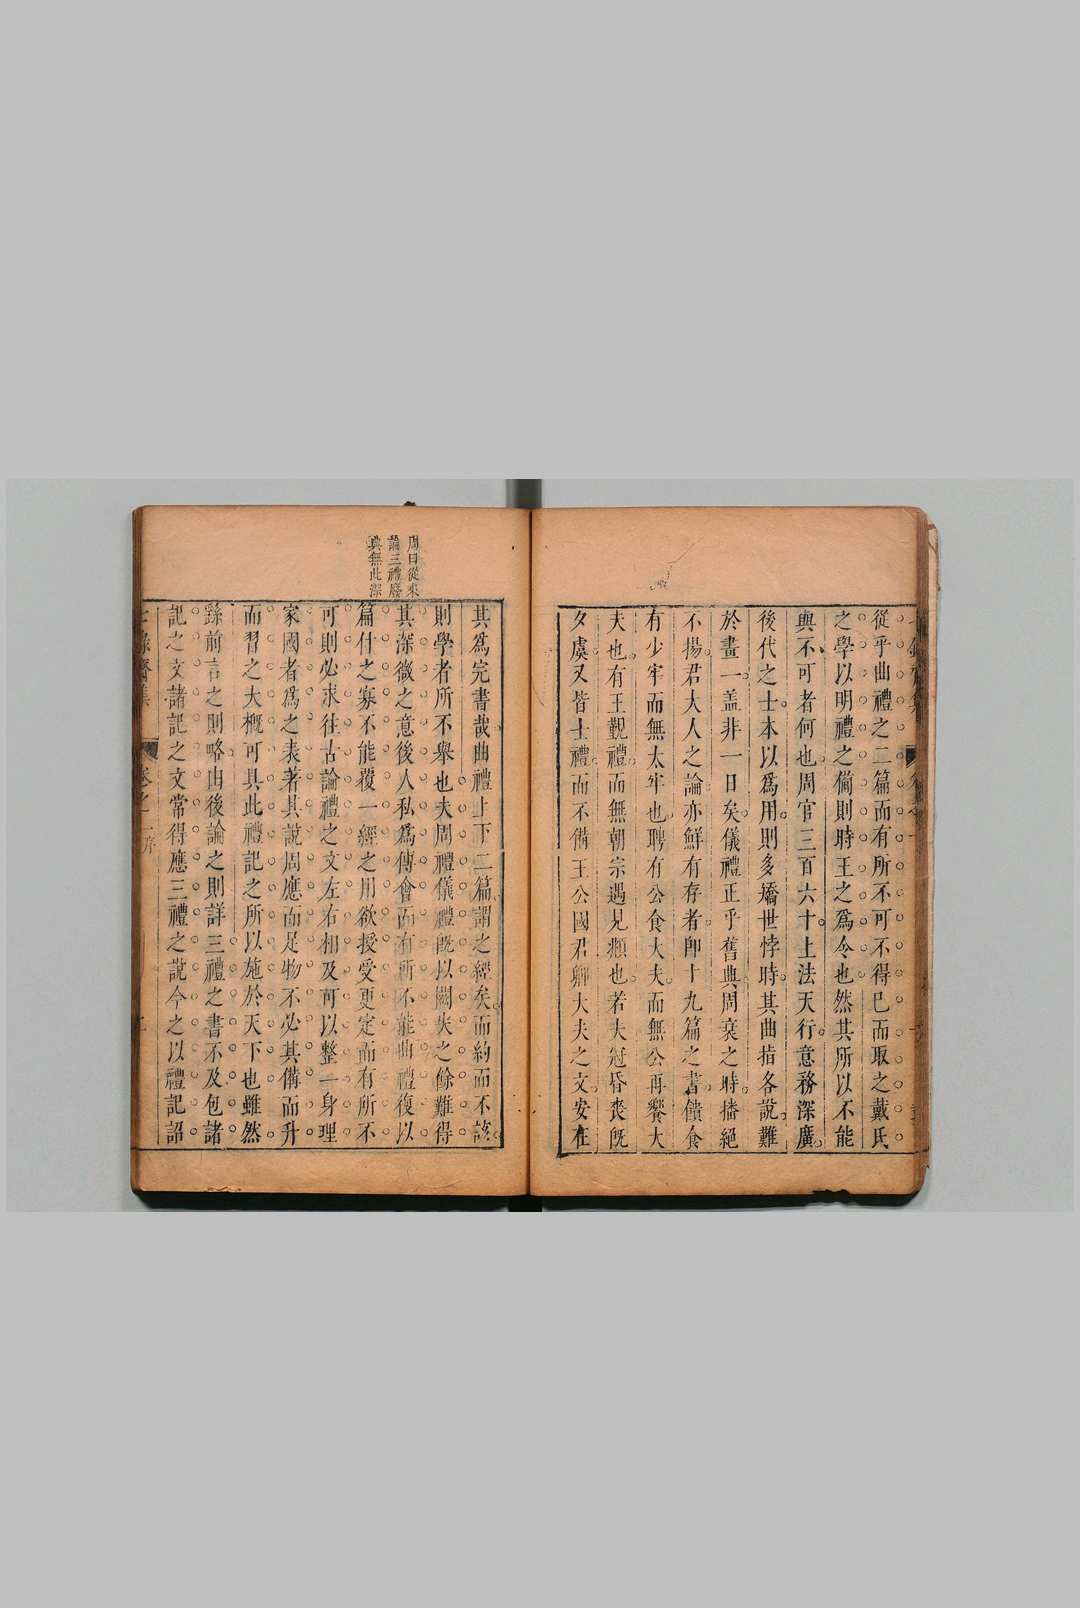 從乎曲禮之二篇而有所不可不得已而取之戴氏
之學以明禮之倘則時王之爲令也然其所以不能
與不可者何也周官三百六十上法天行意務深廣
後代之士本以爲用則多矯世悖時其曲指各說難
於畫一盖非一日矣儀禮正乎舊典周衰之時播絕
不揚君大人之論亦鮮有存者卽十九篇之書饋食
有少牢而無太牢也聘有公食大夫而無公再饗大
夫也有王覲禮而無朝宗遇見頫也若夫冠昏喪旣
夕虞又皆士禮而不備王公國君卿大夫之文安在
周曰從來
論三禮廢
興無此深
其爲完書哉曲禮上下二篇謂之經矣而約而不該
則學者所不舉也夫周禮儀禮旣以闕失之餘難得
其深微之意後人私爲傳會而有所不能曲禮復以
篇什之寡不能覆一經之用欲授受更定而有所不
可則必求往古論禮之文左右相及可以整一身理
家國者爲之表著其說周應而足物不必其備而升
而習之大槪可具此禮記之所以施於天下也雖然
繇前言之則略由後論之則詳三禮之書不及包諸
記之文諸記之文常得應三禮之說今之以禮記詔
七錄齋集
卷之一序